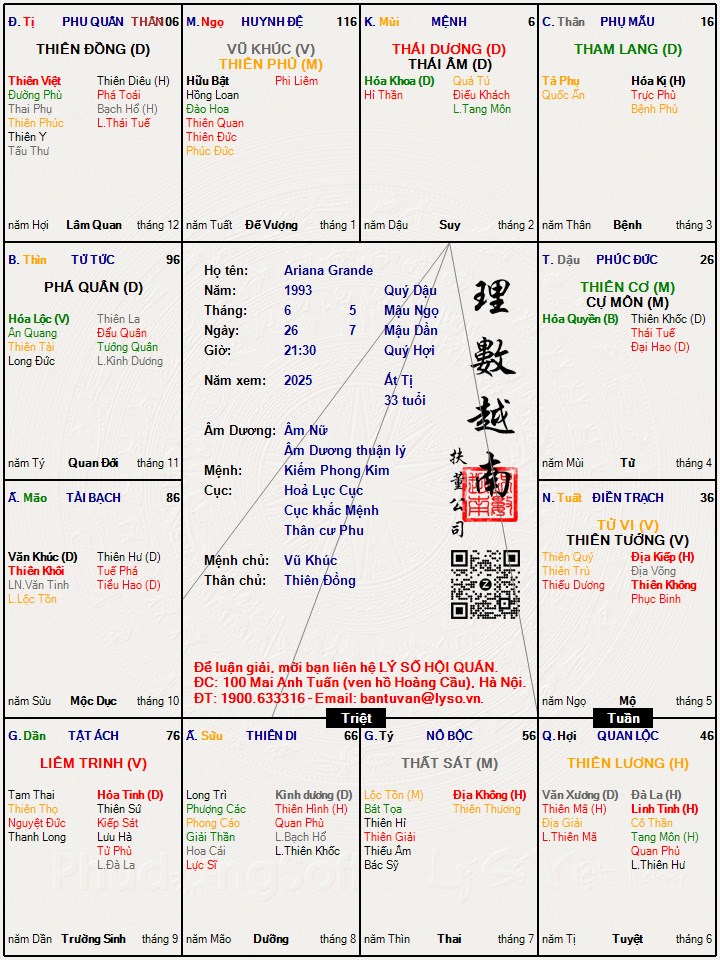 Đ. Tị PHU QUÂN THÂN106
THIÊN ĐỒNG (D)
Thiên Việt Thiên Diêu (H)
Đường Phù Phá Toái
Thai Phụ Bạch Hổ (H)
Thiên Phúc L.Thái Tuế
Thiên Y
Tấu Thư
năm Hợi Lâm Quan tháng 12
M. Ngọ HUYNH ĐỆ 116
VŨ KHÚC (V)
THIÊN PHỦ (M)
Hữu Bật Phi Liêm
Hồng Loan
Đào Hoa
Thiên Quan
Thiên Đức
Phúc Đức
năm Tuất Đế Vượng tháng 1
K. Mùi MỆNH 6
THÁI DƯƠNG (D)
THÁI ÂM (D)
Hóa Khoa (D) Quả Tú
Hỉ Thần Điếu Khách
L.Tang Môn
năm Dậu Suy tháng 2
C. Thân PHỤ MẪU 16
THAM LANG (D)
Tả Phụ Hóa Kị (H)
Quốc Ấn Trực Phù
Bệnh Phù
năm Thân Bệnh tháng 3
B. Thìn TỬ TỨC 96
PHÁ QUÂN (D)
Hóa Lộc (V) Thiên La
Ân Quang Đẩu Quân
Thiên Tài Tướng Quân
Long Đức L.Kình Dương
năm Tý Quan Đới tháng 11
Họ tên: Ariana Grande
Năm: 1993 Quý Dậu
Tháng: 6 5 Mậu Ngọ
Ngày: 26 7 Mậu Dần
Giờ: 21:30 Quý Hợi
Năm xem: 2025 Ất Tị
33 tuổi
Âm Dương: Âm Nữ
Âm Dương thuận lý
Mệnh: Kiếm Phong Kim
Cục: Hoả Lục Cục
Cục khắc Mệnh
Thân cư Phu
Mệnh chủ: Vũ Khúc
Thân chủ: Thiên Đồng
理
數
越
南
扶
董
公
司
Để luận giải, mời bạn liên hệ LÝ SỐ HỘI QUÁN.
ĐC: 100 Mai Anh Tuấn (ven hồ Hoàng Cầu), Hà Nội.
ĐT: 1900.633316 - Email: bantuvan@lyso.vn.
T. Dậu PHÚC ĐỨC 26
THIÊN CƠ (M)
CỰ MÔN (M)
Hóa Quyền (B) Thiên Khốc (D)
Thái Tuế
Đại Hao (D)
năm Mùi Tử tháng 4
Ấ. Mão TÀI BẠCH 86
Văn Khúc (D) Thiên Hư (D)
Thiên Khôi Tuế Phá
LN.Văn Tinh Tiểu Hao (D)
L.Lộc Tồn
năm Sửu Mộc Dục tháng 10
N. Tuất ĐIỀN TRẠCH 36
TỬ VI (V)
THIÊN TƯỚNG (V)
Thiên Quý Địa Kiếp (H)
Thiên Trù Địa Võng
Thiếu Dương Thiên Không
Phục Binh
năm Ngọ Mộ tháng 5
Triệt
Tuần
G. Dần TẬT ÁCH 76
LIÊM TRINH (V)
Tam Thai Hỏa Tinh (D)
Thiên Thọ Thiên Sứ
Nguyệt Đức Kiếp Sát
Thanh Long Lưu Hà
Tử Phù
L.Đà La
năm Dần Trường Sinh tháng 9
Ấ. Sửu THIÊN DI 66
Long Trì Kình dương (D)
Phượng Các Thiên Hình (H)
Phong Cáo Quan Phù
Giải Thần L.Bạch Hổ
Hoa Cái L.Thiên Khốc
Lực Sĩ
năm Mão Dưỡng tháng 8
G. Tý NÔ BỘC 56
THẤT SÁT (M)
Lộc Tồn (M) Địa Không (H)
Bát Tọa Thiên Thương
Thiên Hỉ
Thiên Giải
Thiếu Âm
Bác Sỹ
năm Thìn Thai tháng 7
Q. Hợi QUAN LỘC 46
THIÊN LƯƠNG (H)
Văn Xương (D) Đà La (H)
Thiên Mã (H) Linh Tinh (H)
Địa Giải Cô Thần
L.Thiên Mã Tang Môn (H)
Quan Phủ
L.Thiên Hư
năm Tị Tuyệt tháng 6